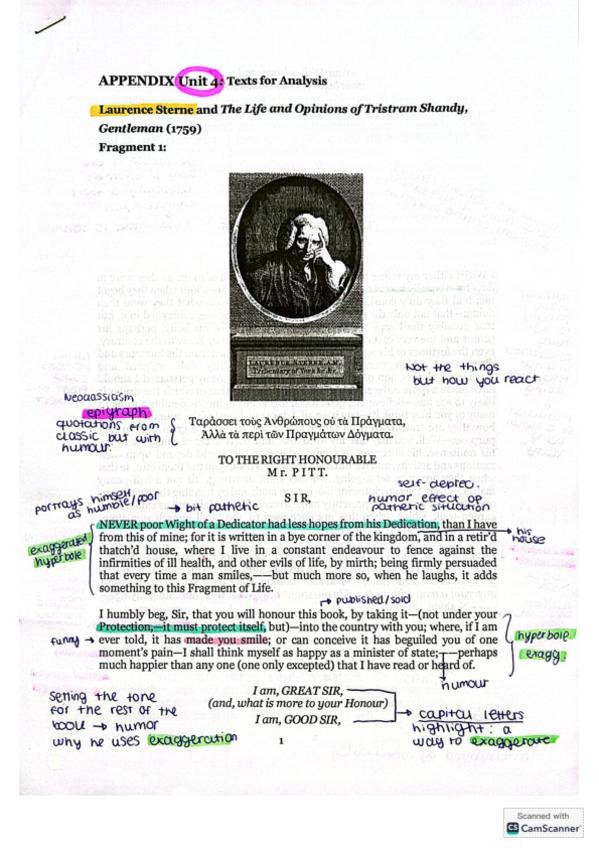 APPENDIX Unit 4: Texts for Analysis
Laurence Sterne and The Life and Opinions of Tristram Shandy,
Gentleman (1759)
Fragment 1:
LAURENCE STERNE, A.M.
Prebendary of York &c. &c.
Not the things
but how you react
Neoclassicism
epigraph
quotations from
classic but with
humour.
Ταράσσει τοὺς Ἀνθρώπους οὐ τὰ Πράγματα,
Ἀλλὰ τὰ περὶ τῶν Πραγμάτων Δόγματα.
TO THE RIGHT HONOURABLE
Mr. PITT.
SIR,
self-deprec.
humor effect of
pathetic situation
portrays himself
as humble/poor
→ bit pathetic
exaggerated
hyperbole
NEVER poor Wight of a Dedicator had less hopes from his Dedication, than I have
from this of mine; for it is written in a bye corner of the kingdom, and in a retir'd
thatch'd house, where I live in a constant endeavour to fence against the
infirmities of ill health, and other evils of life, by mirth; being firmly persuaded
that every time a man smiles,——but much more so, when he laughs, it adds
something to this Fragment of Life.
→ his
house
→ published/sold
I humbly beg, Sir, that you will honour this book, by taking it—(not under your
Protection,—it must protect itself, but)—into the country with you; where, if I am
ever told, it has made you smile; or can conceive it has beguiled you of one
moment's pain—I shall think myself as happy as a minister of state;—perhaps
much happier than any one (one only excepted) that I have read or heard of.
funny →
hyperbole
exagg.
humour
I am, GREAT SIR,
(and, what is more to your Honour)
I am, GOOD SIR,
setting the tone
for the rest of the
book → humor
why he uses exaggeration
→ capital letters
highlight: a
way to exaggerate
1
Scanned with
CS CamScanner